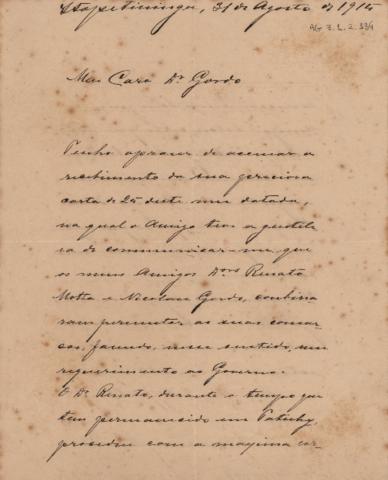 Itapetininga, 31 de Agosto de 1915
AG 3.1.2.334
Meu Caro Dr Gordo
Tenho o prazer de accusar o
recebimento da sua preciosa
carta de 25 deste mez datada,
na qual o Amigo teve a gentile
za de communicar-me que
os meus Amigos Drs Renato
Motta e Nicolau Gordo, combina
ram permutar as suas comar-
cas, fazendo, nesse sentido, um
requerimento ao Governo.
O Dr Renato, durante o tempo que
tem permanecido em Tatuhy,
procedeu com a maxima cor-